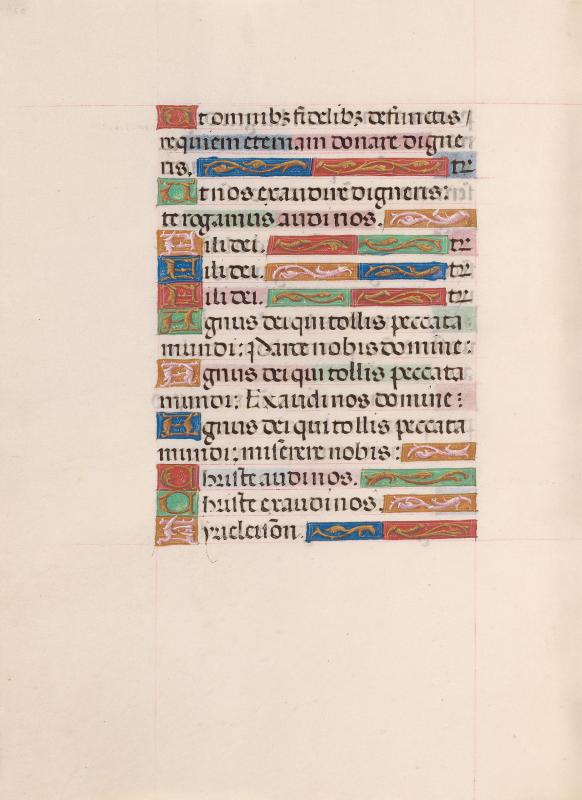 Ut omnibꝫ fidelibꝫ defunctis /
requiem eternam donare digne
ris. tr̄
Ut nos exaudire digneris:
te rogamus audi nos.
Fili dei. tr̄
Fili dei. tr̄
Fili dei. tr̄
Agnus dei qui tollis peccata
mundi: Parce nobis domine:
Agnus dei qui tollis peccata
mundi: Exaudi nos domine:
Agnus dei qui tollis peccata
mundi: miserere nobis:
Christe audi nos.
Christe exaudi nos.
Kyrieleison.